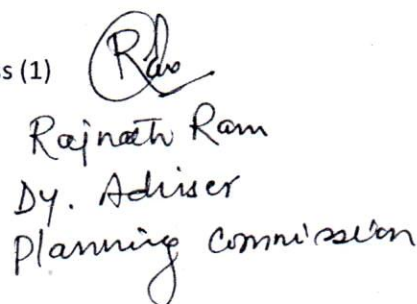 s (1)
Rajnath Ram
Dy. Adviser
Planning Commission